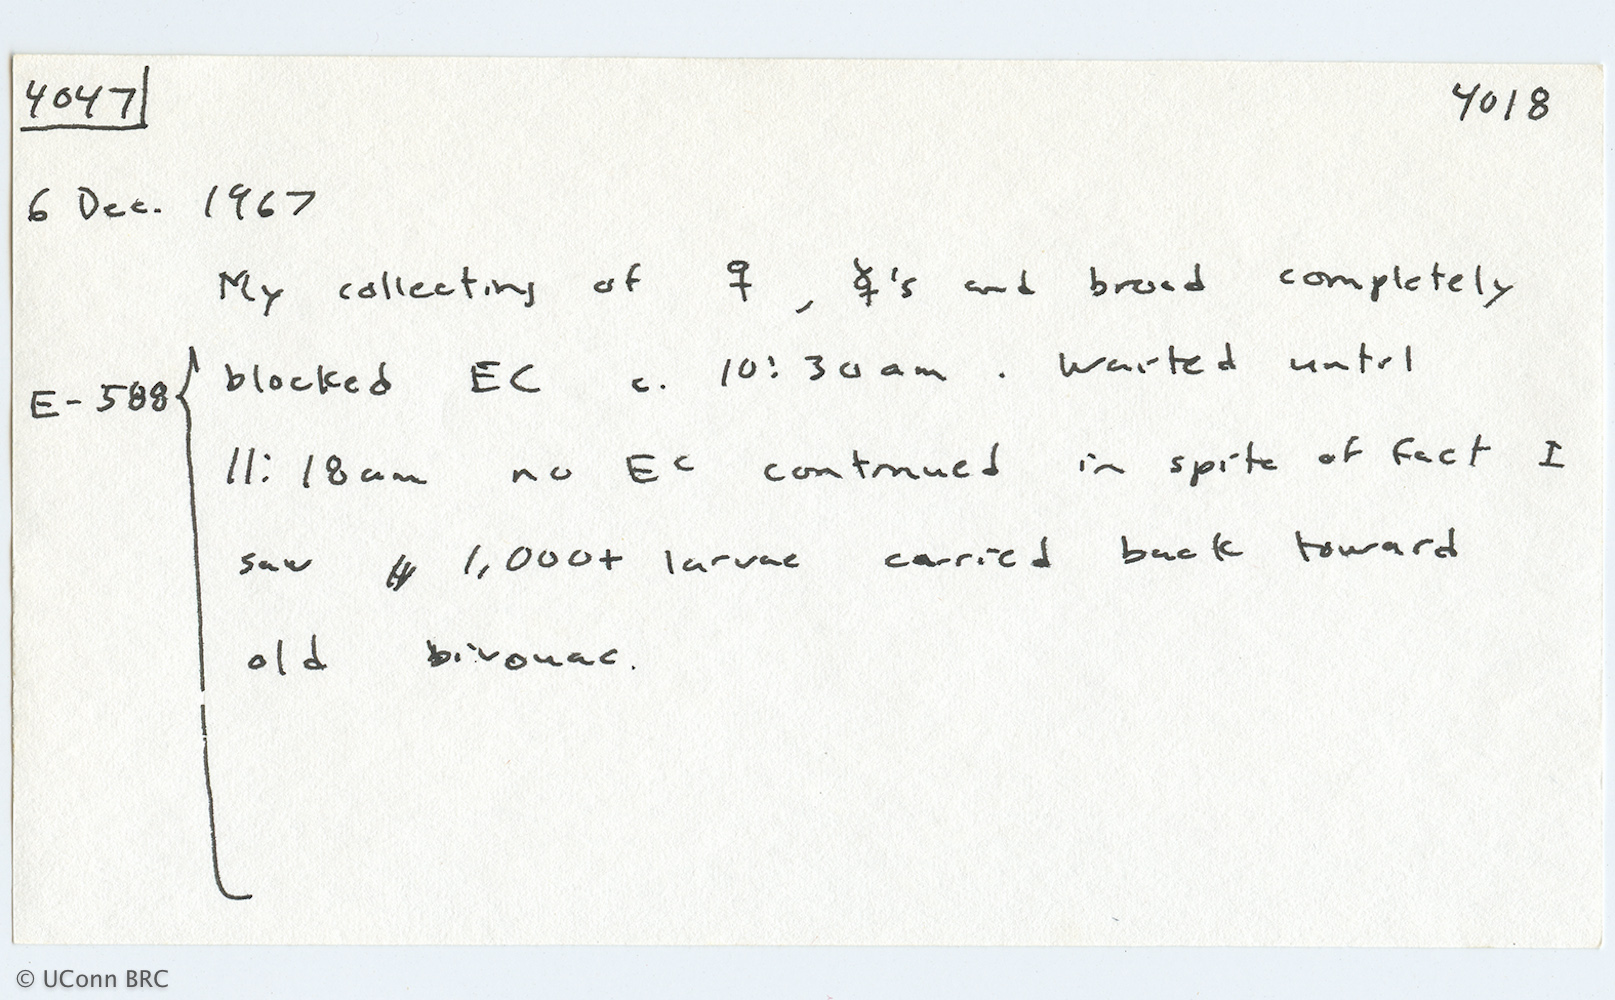 4047 4018
6 Dec. 1967
My collecting of ♀, ☿'s and brood completely
E-588 { blocked EC c. 10:30am. Waited until
11:18am no EC continued in spite of fact I
saw 1,000+ larvae carried back toward
old bivouac.
© UConn BRC